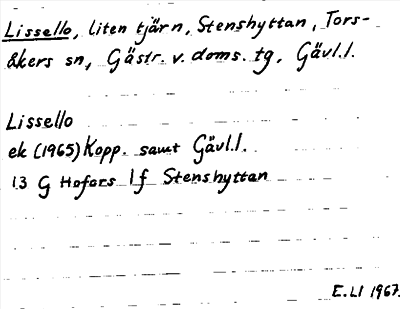 Lissello, liten tjärn, Stenshyttan, Tors-
åkers sn, Gästr. v. doms. tg, Gävl.l.
Lissello
ek (1965) Kopp. samt Gävl.l.
13 G Hofors 1f Stenshyttan
E.LI 1967.